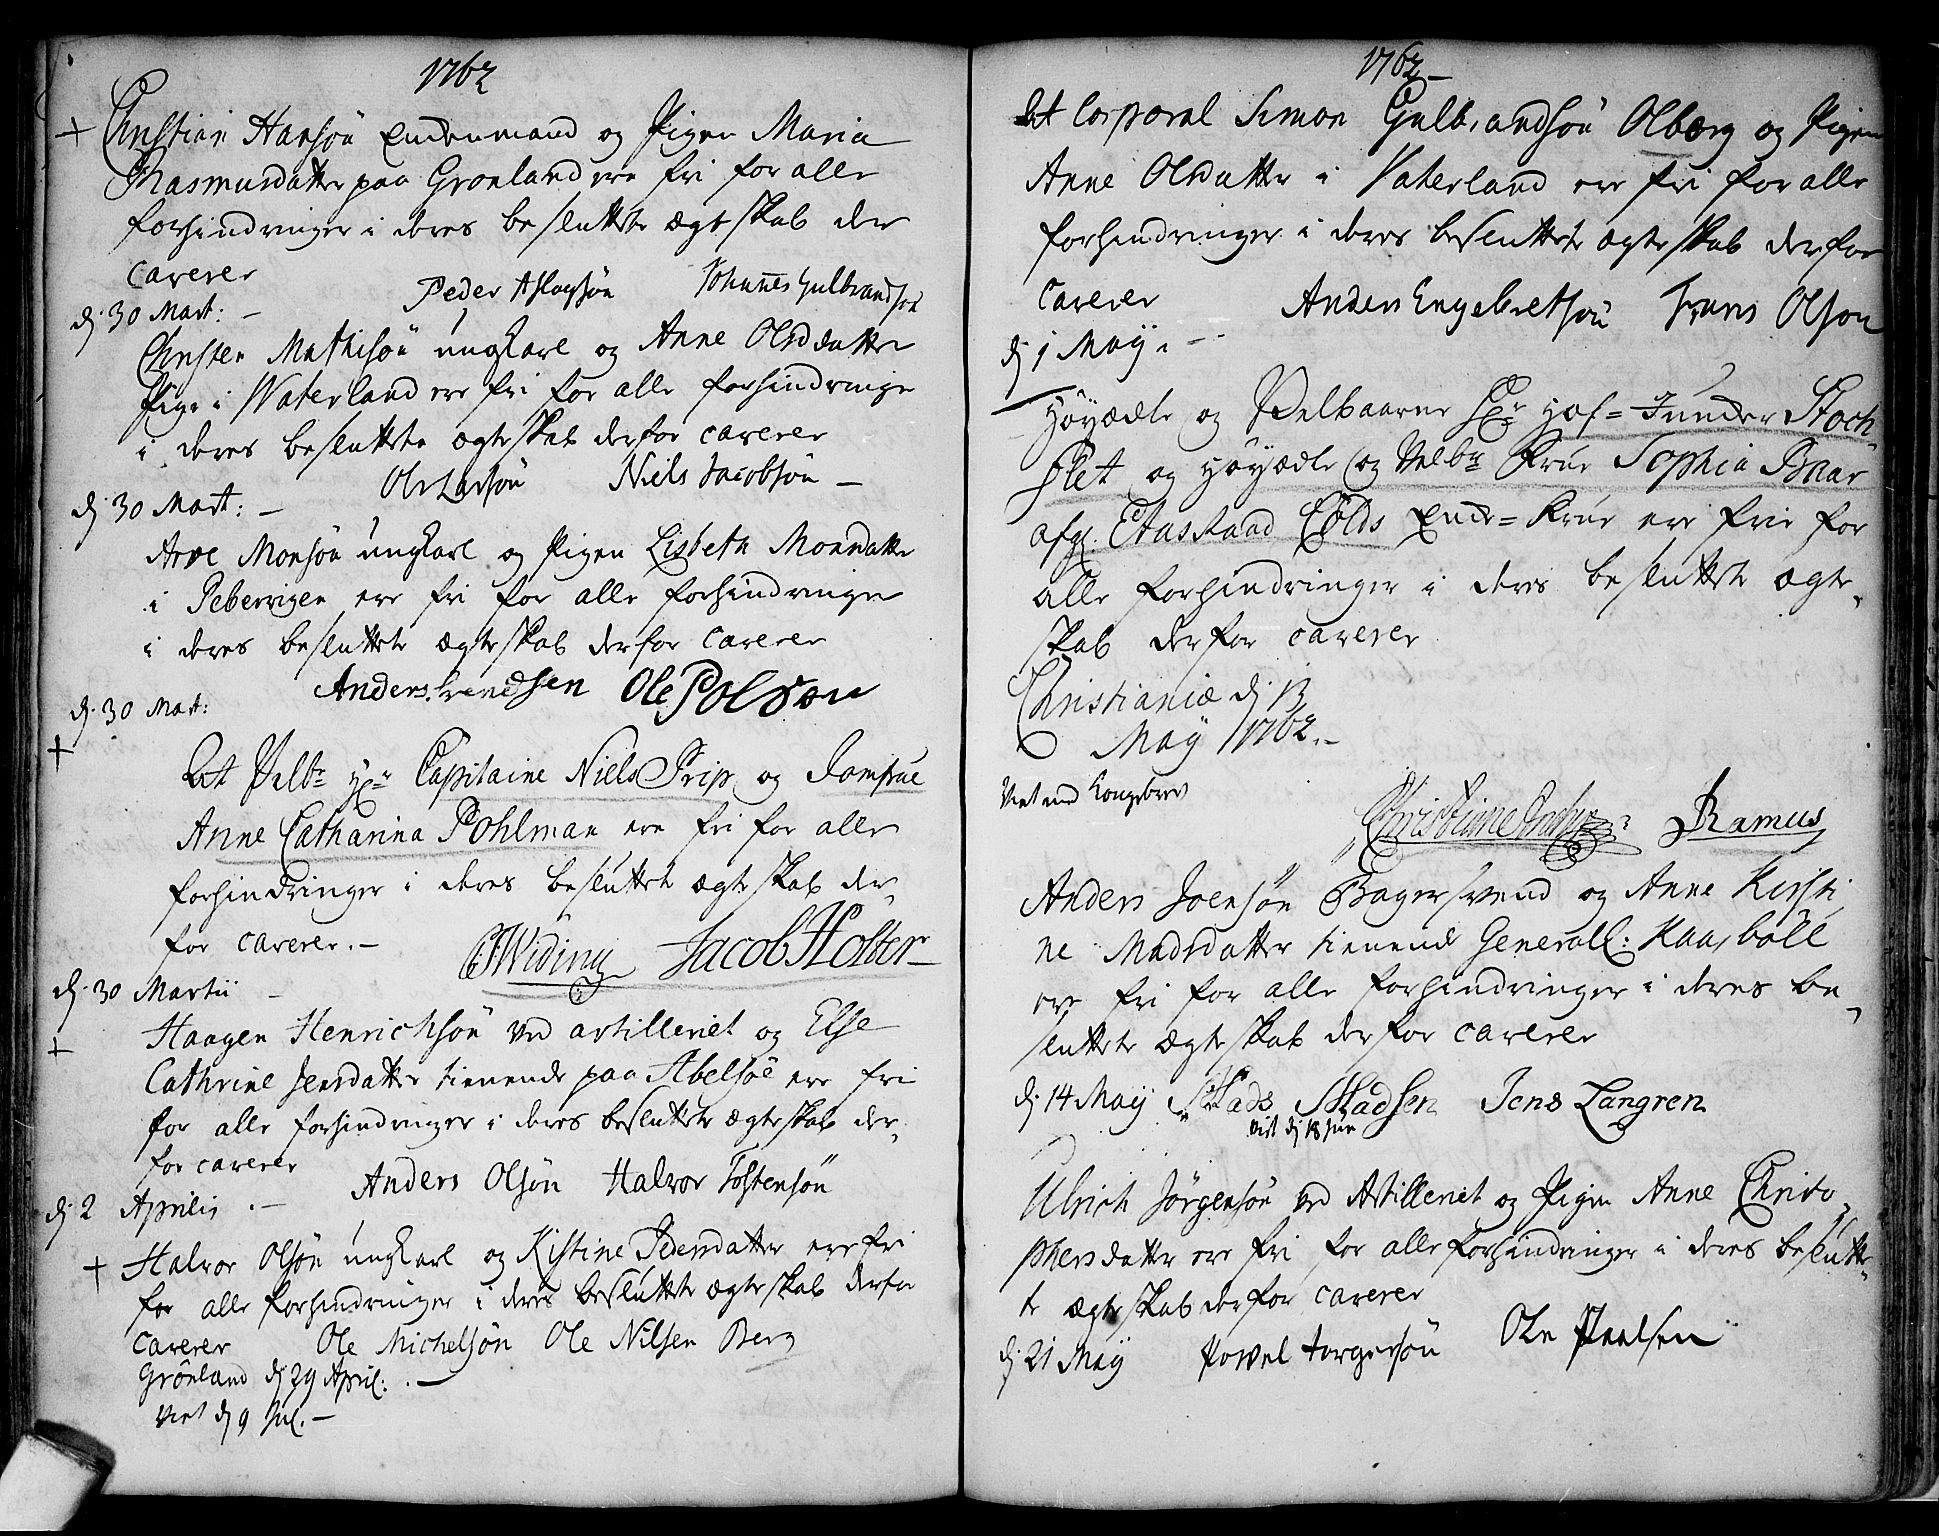 1762
+ Christian Hansøn Enckemand og Pigen Maria
Rasmusdatter paa Grønland ere fri for alle
forhindringer i deres besluttete ægteskab der
caverer Peder Aslagsøn Johannes Gulbrandsøn
dj 30 Mart: —
Christen Mathisøn ungkarl og Anne Olsdatter
Pige i Waterland ere fri for alle forhindringe
i deres besluttete ægteskab derfor caverer
Ole Larsøn Niels Jacobsøn —
dj 30 Mart: —
Arve Monsøn ungkarl og Pigen Lisbeth Monsdatter
i Pebervigen ere fri for alle forhindringer
i deres besluttete ægteskab derfor caverer
Anders Svendsen Ole Polson
dj 30 Mart:
+
At Velbr Hr Capitaine Niels Prip og Jomfrue
Anne Catharina Pohlman ere fri for alle
forhindringer i deres besluttete ægteskab der-
for caverer. — Widing Jacob Holter
dj 30 Martii —
+ Haagen Henrichsøn ved artilleriet og Else
Cathrine Jensdatter tienende paa Abelsøe ere fri
for alle forhindringer i deres besluttete ægteskab der-
for caverer Anders Olsøn Halvor Tostensøn
dj 2 Aprilis . —
+ Halvor Olsøn ungkarl og Kistine Pedersdatter ere fri
for alle forhindringer i deres besluttete ægteskab derfor
caverer Ole Michelsøn Ole Nilsen Berg
Grønland dj 29 April: . —
Viet dj 9 Jul. —
1762 —
At Corporal Simon Gulbrandsøn Olberg og Pigen
Anne Olsdatter i Vaterland ere fri for alle
forhindringer i deres besluttete ægteskab derfor
caverer Anders Engebretsøn Frans Olson
dj 1 May. —
Høyædle og Velbaarne Hr Hof-Juncker Stoch-
flet og Høyædle og Velbr Frue Sophia
afg. Etatsraad Colds Encke-Frue ere frie for
alle forhindringer i deres besluttete ægte-
skab derfor caverer
Christianiæ dj 13
May 1762. —
Viet med Kongebrev
J Ramus
Anders Joensøn Bagersvend og Anne Kirsti
ne Madsdatter tienende General: Kaasbøll
ere fri for alle forhindringer i deres be-
sluttete ægteskab derfor caverer
dj 14 May Mads Madsen Jens Langren
Viet dj 18 Jun
Ulrich Jørgensøn ved Artilleriet og Pigen Anne Christo-
phersdatter ere fri for alle forhindringer i deres beslutte-
te ægteskab derfor caverer
dj 21 May Povel Torgersøn Ole Paalsen